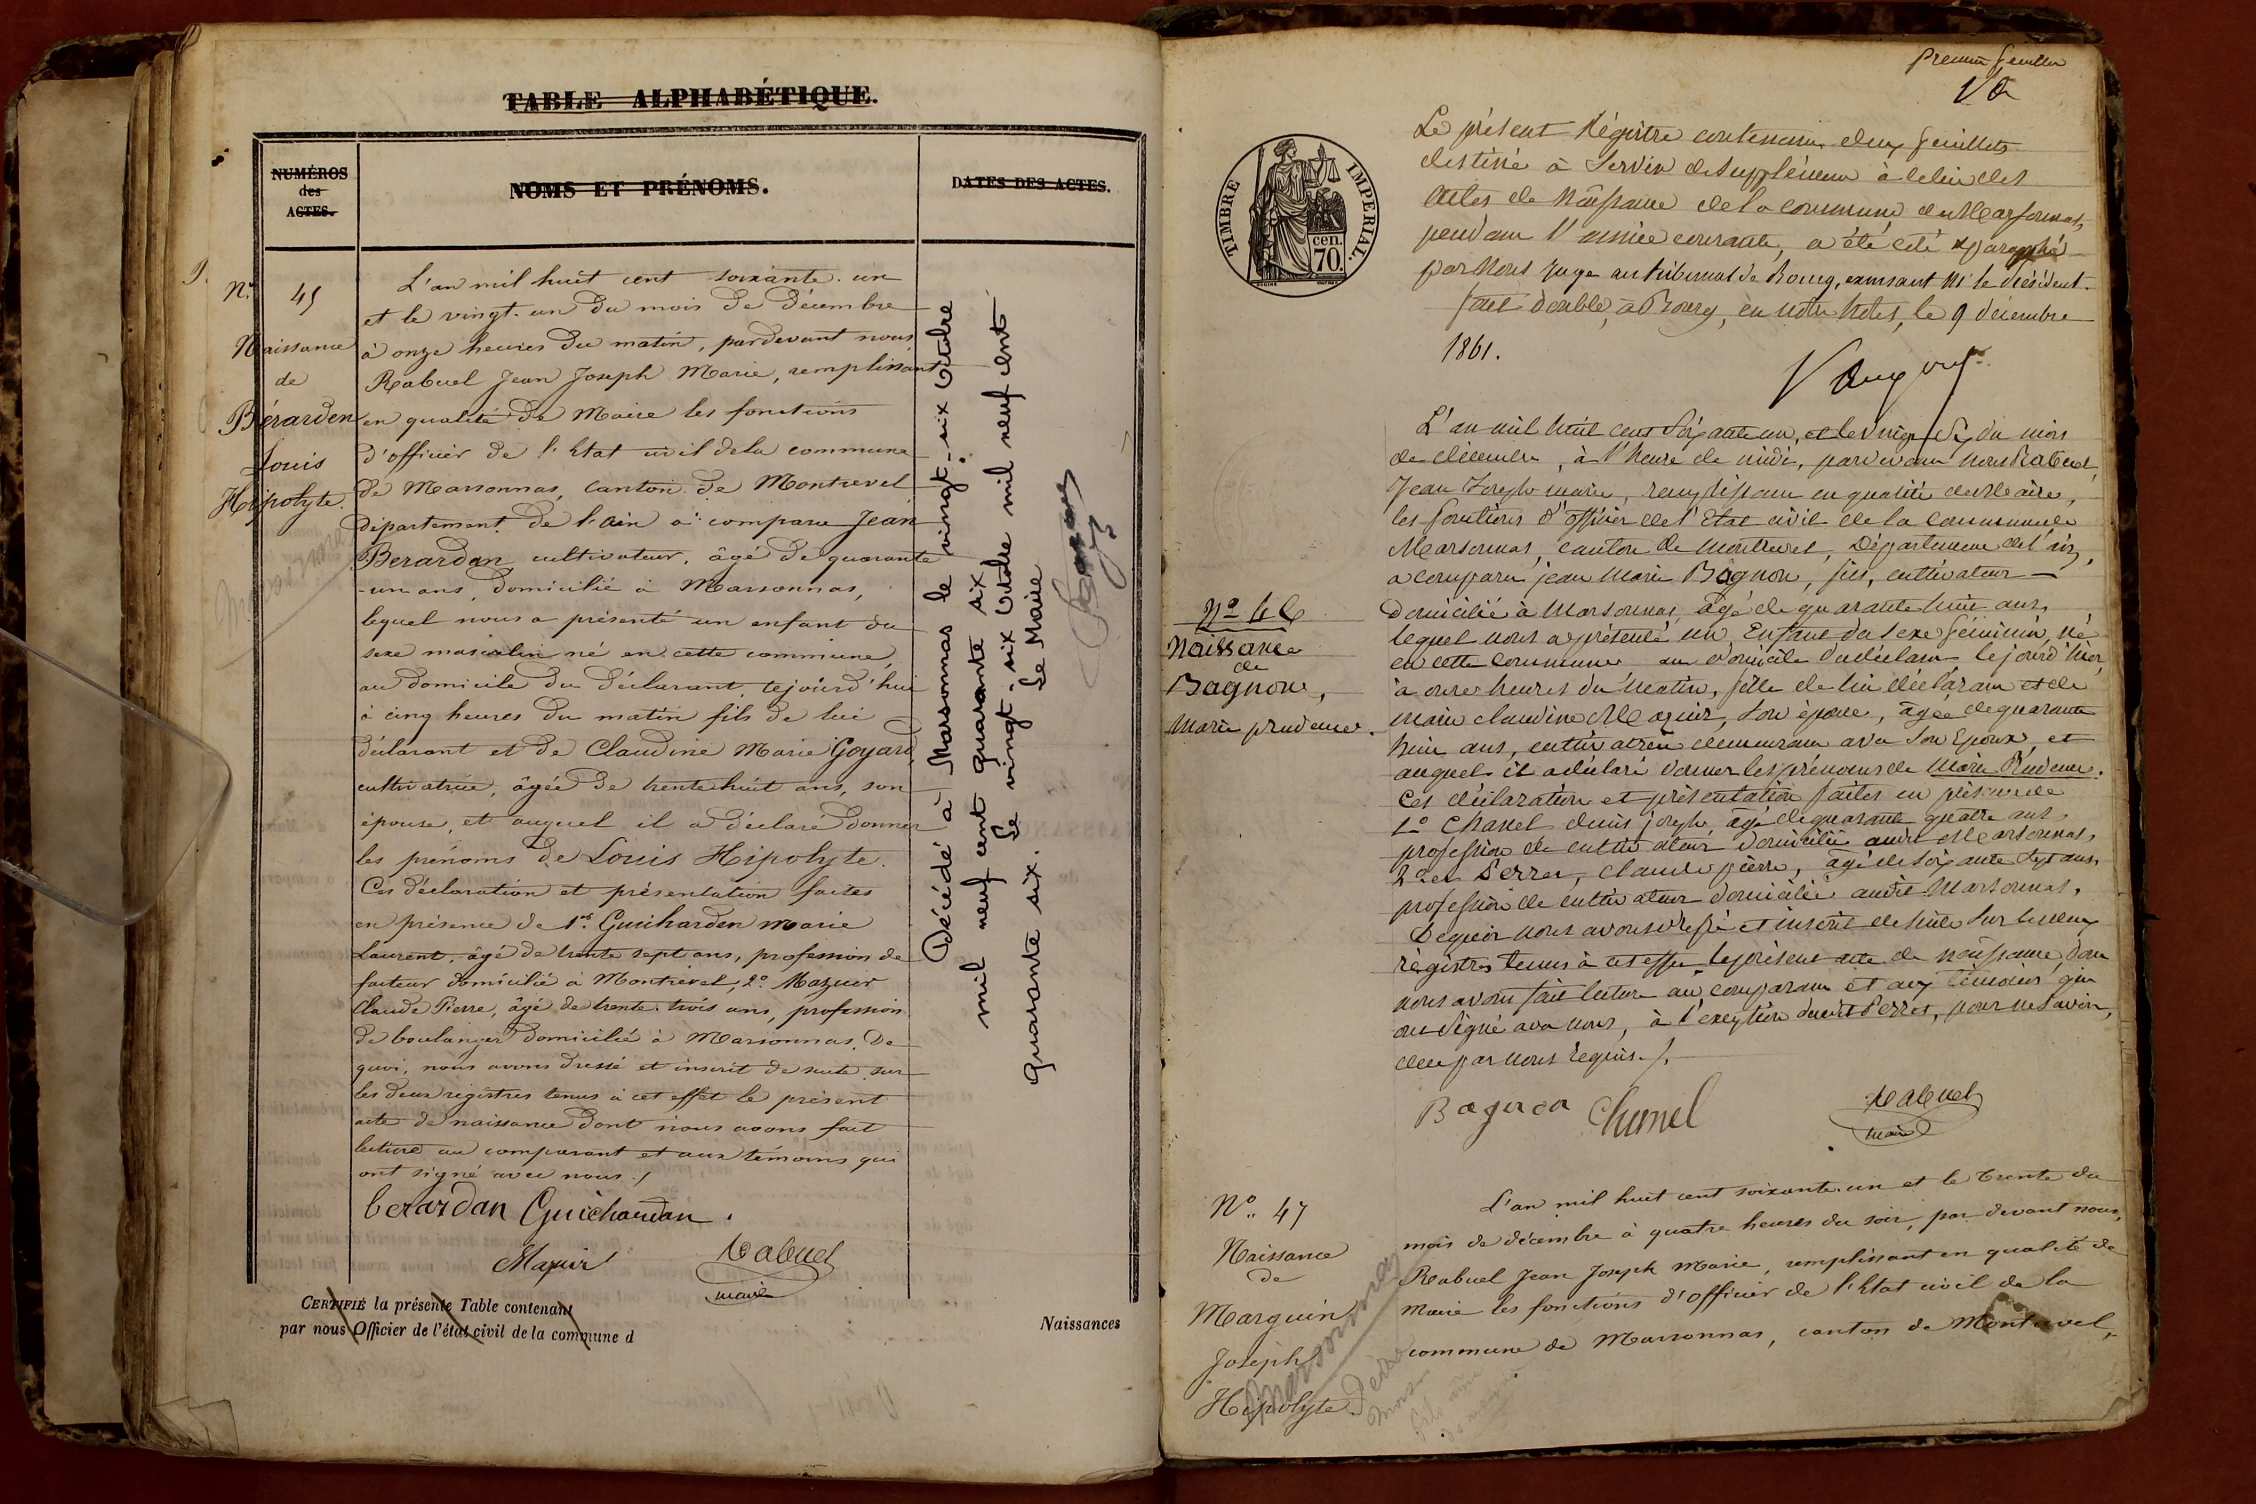 TABLE ALPHABÉTIQUE.
NUMÉROS
des
ACTES.
NOMS ET PRÉNOMS.
DATES DES ACTES.
N.° 45
Naissance
de
Bérarden
Louis
Hipolyte.
L'an mil huit cent soixante-un
et le vingt-un du mois de décembre
à onze heures du matin, pardevant nous
Rabuel Jean Joseph Marie, remplissant
en qualité de Maire les fonctions
d'officier de l'Etat civil de la commune
de Marsonnas, canton de Montrevel
département de l'ain a comparu Jean
Berardan cultivateur, âgé de quarante
-un ans, domicilié à Marsonnas,
lequel nous a présenté un enfant du
sexe masculin né en cette commune,
au domicile du déclarant, lejourd'hui
à cinq heures du matin fils de lui
déclarant et de Claudine Marie Goyard
cultivatrice, âgée de trente huit ans, son
épouse, et auquel il a déclaré donner
les prénoms de Louis Hipolyte.
Ces déclaration et présentation faites
en présence de 1° Guichardon Marie
Laurent, âgé de trente sept ans, profession de
facteur domicilié à Montrevel, 2° Mazuir
Claude Pierre, âgé de trente-trois ans, profession
de boulanger domicilié à Marsonnas. De
quoi, nous avons dressé et inscrit de suite sur
les deux registres tenus à cet effet le présent
acte de naissance dont nous avons fait
lecture au comparant et aux témoins qui
ont signé avec nous./
berardan Guichardan.
Mazuir Rabuel
maire
Décédé à Marsonnas le vingt-six Octobre
mil neuf cent quarante six.
Le vingt-six Octobre mil neuf cent
quarante six. Le Maire
CERTIFIÉ la présente Table contenant
par nous Officier de l'état civil de la commune d
Naissances
Premier feuillet
TIMBRE IMPÉRIAL.
70 cen.
Le présent Régistre contenant deux feuillets
destiné à servir de supplément à celui des
actes de Naissance de la commune de Marsonnas,
pendant l'année courante, a été coté & paraphé
par Nous Juge au tribunal de Bourg, exerçant M. le Président.
fait double, à Bourg, en notre hôtel, le 9 décembre
1861.
N° 46
Naissance
de
Bagnon,
Marie prudence.
L'an mil huit cent soixante un, et le vingt six du mois
de décembre, à l'heure de midi, pardevant nous Rabuel
Jean Joseph marie, remplissant en qualité de Maire,
les fonctions d'officier de l'Etat civil de la commune de
Marsonnas, canton de Montrevel, Département de l'ain,
a comparu jean Marie Bagnon, fils, cultivateur
domicilié à Marsonnas, âgé de quarante huit ans,
lequel nous a présenté un Enfant du sexe féminin, né
en cette commune au domicile du déclarant, le jourd'hier,
à onze heures du Matin, fille de lui déclarant et de
Marie claudine Mazuir, son épouse, âgée de quarante
huit ans, cultivatrice demeurant avec son Epoux, et
auquel il a déclaré donner les prénoms de Marie Prudence.
Ces déclaration et présentation faites en présence de
1° Chanel denis joseph, âgé de quarante quatre ans,
profession de cultivateur domicilié audit Marsonnas,
2° et Perret, claude pierre, âgé de soixante sept ans,
profession de cultivateur domicilié audit Marsonnas.
De quoi nous avons dressé et inscrit de suite sur les deux
régistres tenus à cet effet, le présent acte de naissance, dont
nous avons fait lecture au comparant et aux témoins qui
ont signé avec nous, à l'exception dudit Perret, pour ne savoir,
de ce par nous requis./.
Bagnon Chanel Rabuel
maire
N° 47
Naissance
de
Marguin
Joseph
Hipolyte.
L'an mil huit cent soixante-un et le trente du
mois de décembre à quatre heures du soir, par devant nous,
Rabuel Jean Joseph Marie, remplissant en qualité de
Maire les fonctions d'officier de l'Etat civil de la
commune de Marsonnas, canton de Montrevel,
Marsonnas